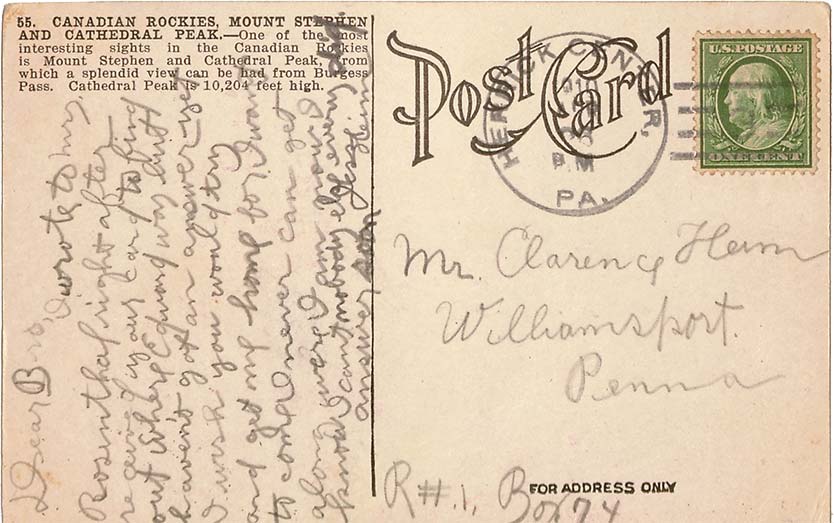 55. CANADIAN ROCKIES, MOUNT STEPHEN
AND CATHEDRAL PEAK.—One of the most
interesting sights in the Canadian Rockies
is Mount Stephen and Cathedral Peak, from
which a splendid view can be had from Burgess
Pass. Cathedral Peak is 10,204 feet high.
Dear Bro,
I wrote to Mrs.
Rosinthal right after
receiving your card to find
out where Edward was but
havent got an answer yet
I wish you would try
and get me home for I want
to come I never can get
along were I am now I
know I cant nobody else every did.
answer soon
Post Card
HERRICK CENTER,
PA.
P.M
U.S. POSTAGE
ONE CENT
Mr. Clarence Heim
Williamsport.
Penna
R#.1, Box 74
FOR ADDRESS ONLY